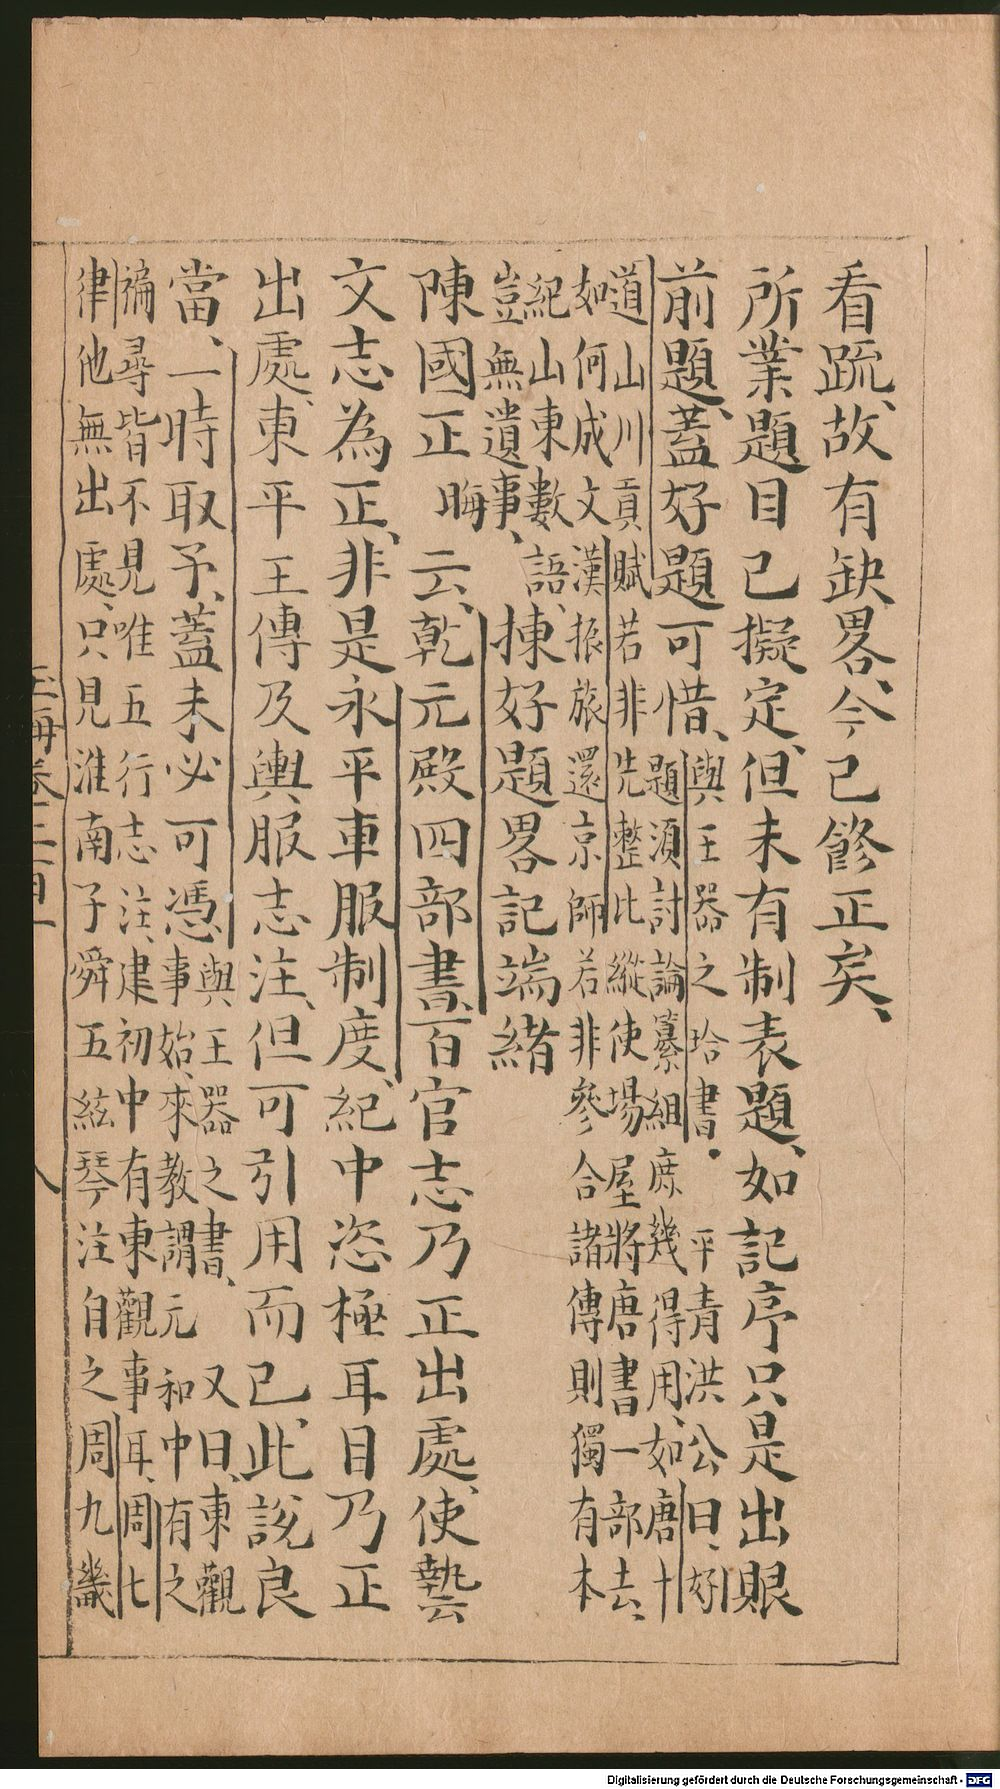 看䟽、故有缺畧、今已脩正矣、
所業題目已擬定、但未有制表題、如記序只是出賬
前題、蓋好題可惜、
與王器之玲書。平青洪公曰、好
題須討論纂組庶幾得用、如唐十
道山川貢賦若非先整比縱使場屋將唐書一部去、
如何成文漢振旅還京師若非參合諸傳則獨有本
紀山東數語、
豈無遺事、
揀好題畧記端緒
陳國正晦云、乾元殿四部書、百官志乃正出處、使藝
文志為正、非是永平車服制度、紀中恣極耳目乃正
出處、東平王傳及輿服志注、但可引用而已、此說良
當、一時取予、蓋未必可憑
與王器之書、又曰、東觀
事始、來教謂元和中有之
徧尋皆不見唯五行志注、建初中有東觀事耳、周七
律他無出處、只見淮南子舜五絃琴注自之周九畿
玉海卷二百一
八
Digitalisierung gefördert durch die Deutsche Forschungsgemeinschaft - DFG